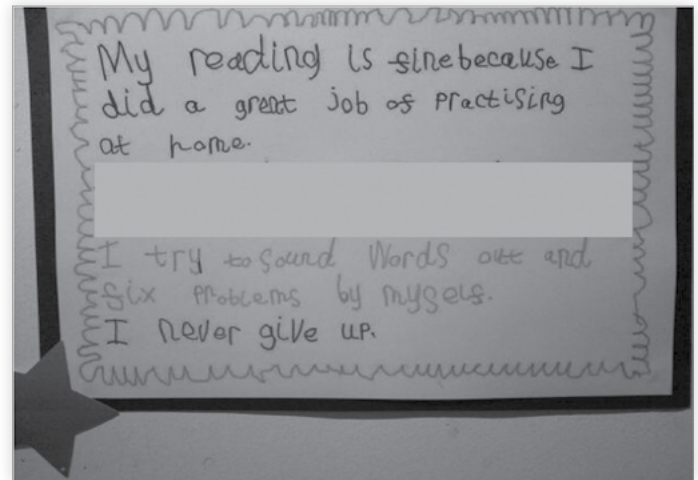 My reading is fine because I
did a great job of practising
at home.
I try to sound words out and
fix problems by myself.
I never give up.